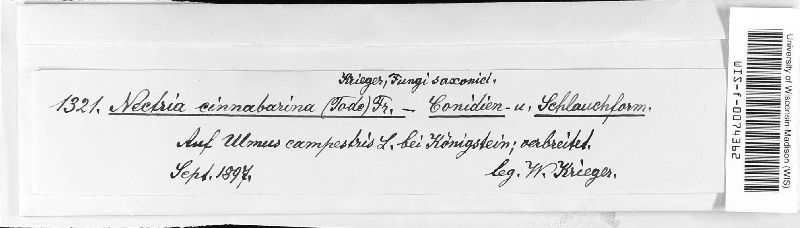 Krieger, Fungi saxonici.
1321. Nectria cinnabarina (Tode) Fr. – Conidien- u. Schlauchform.
Auf Ulmus campestris L. bei Königstein; verbreitet.
Sept. 1897. leg. W. Krieger.
University of Wisconsin-Madison (WIS)
WIS-f-0074362